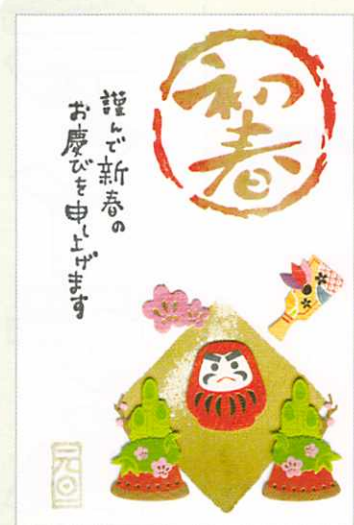 初春
謹んで新春の
お慶びを申し上げます
元旦